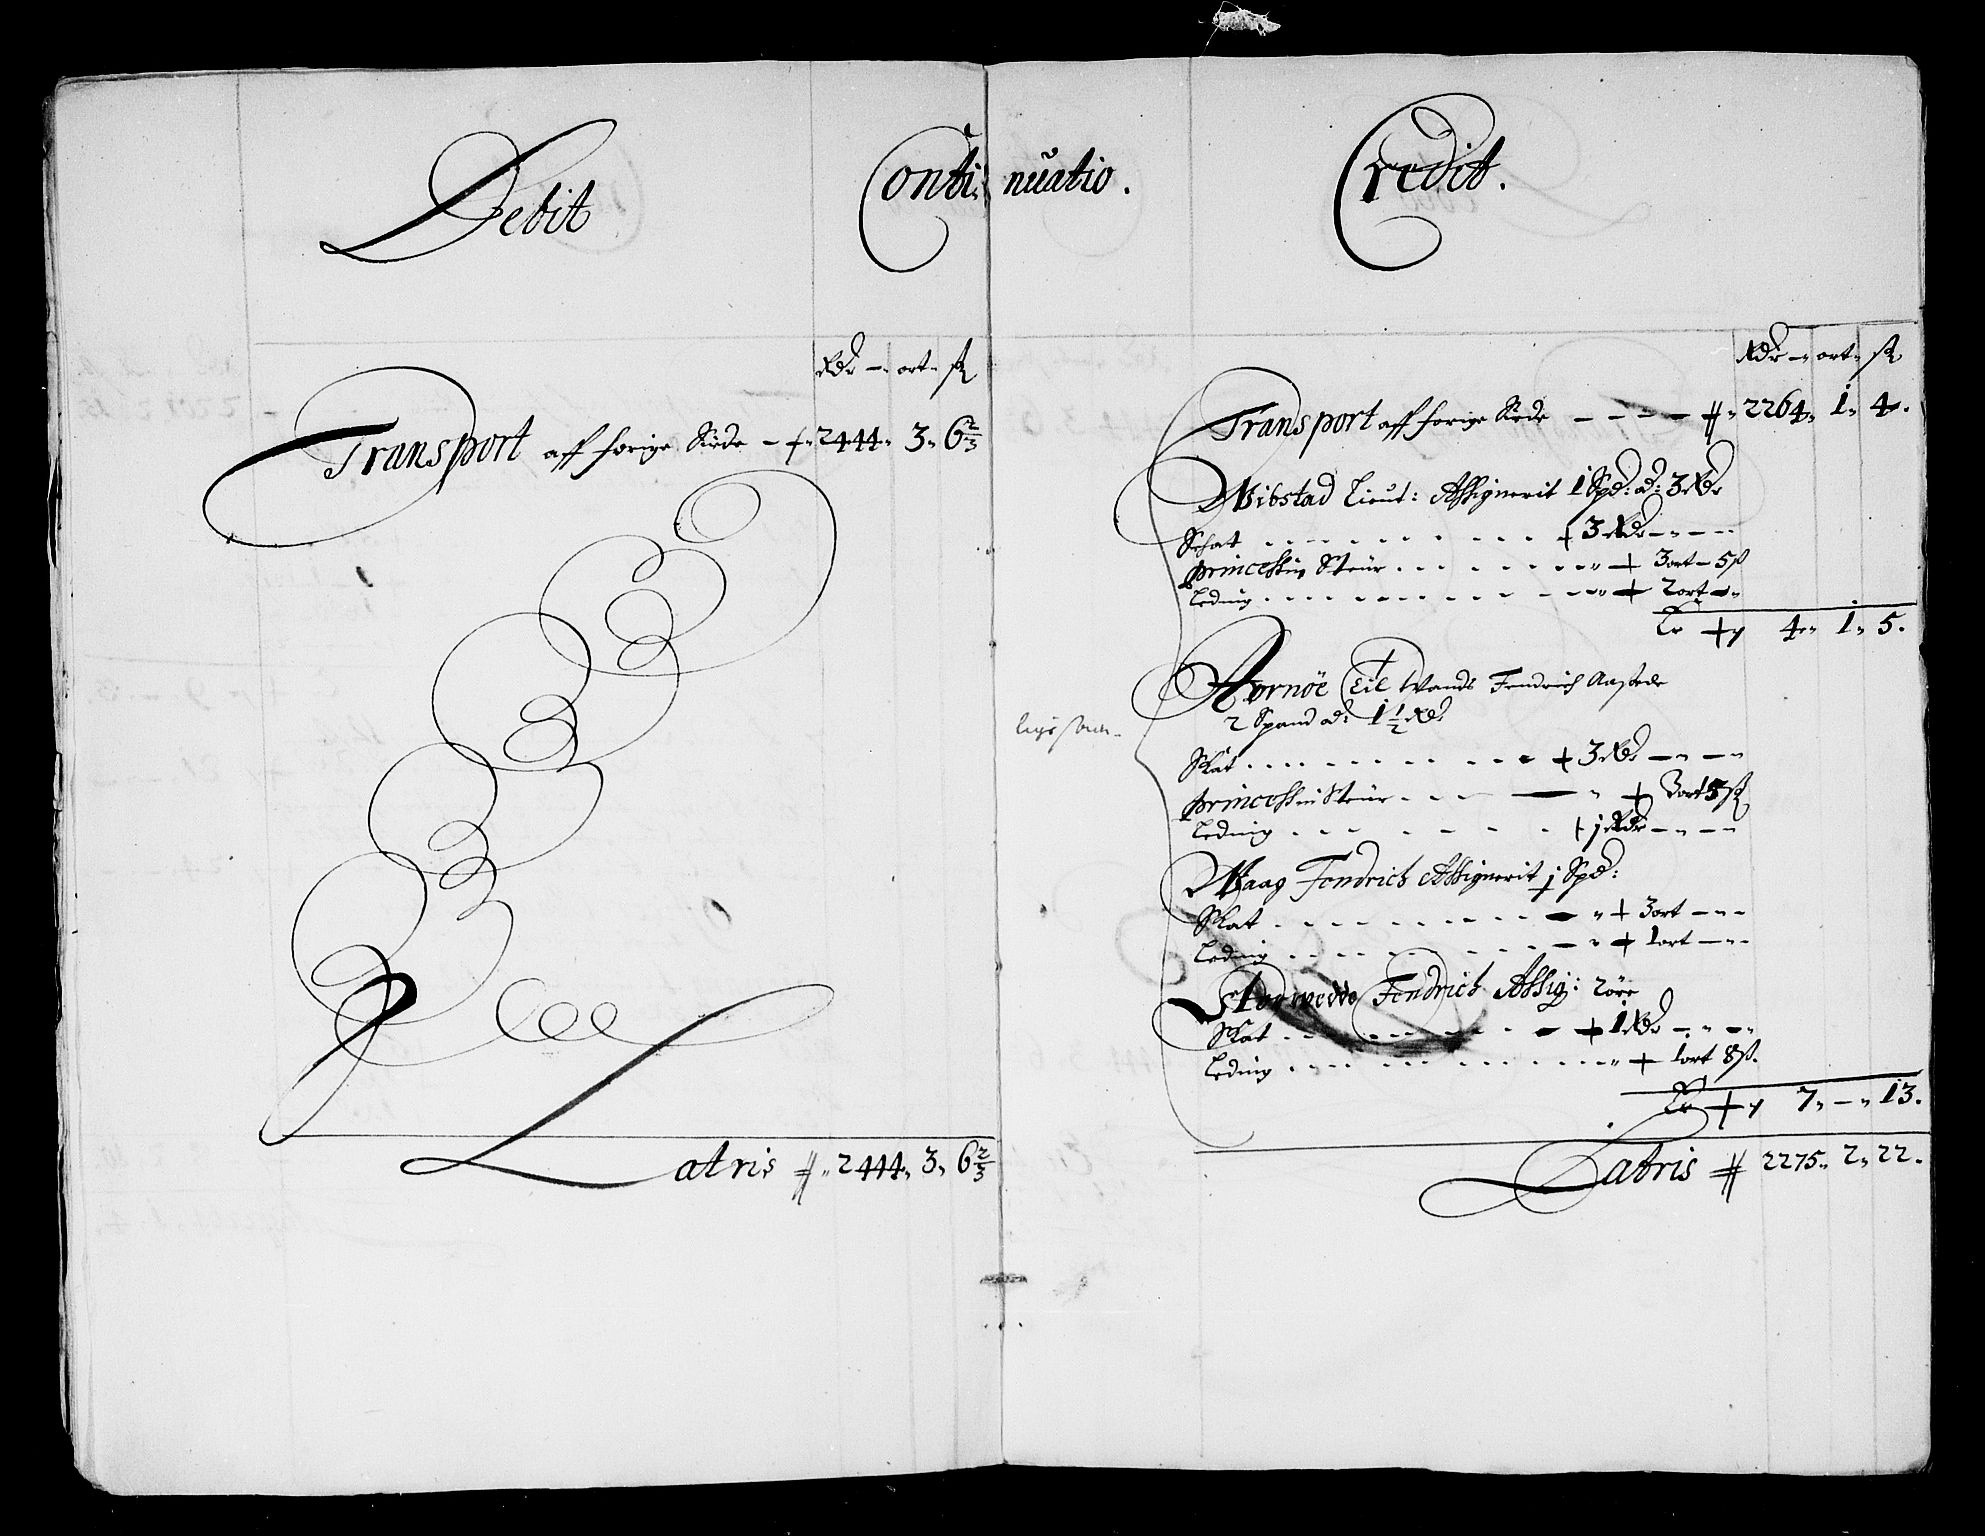 Debit
Conti: nuatio.
Rdr — ort ß
Transport aff forige Siede — 2444 3 6 2/3
Latris 2444 3 6 2/3
Credit.
Rdr — ort ß
Transport aff forige Siede — — — — 2264 1 4.
Wibstad Lieut: Assignerit 1 Spd: ad: 3 Rdr
Schat . . . . 3 Rdr — —
princessin Steur . . . . 3 ort — 5 ß
Leding . . . . 2 ort —
4 1 5.
Aornöe til Wands Fendrich Aastede
2 Spand ad: 1 1/2 Rdr
Skat . . . . 3 Rdr — —
princessin Steur . . . . 3 ort 5 ß
Leding . . . . 1 Rdr — —
Waag Fendrich Assignerit j Spd:
Skat . . . . 3 ort — —
Leding . . . . 1 ort — —
Fendrich Assig: 2 öre
Skat . . . . 1 Rdr — —
Leding . . . . 1 ort 8 ß.
7 — 13.
Latris 2275 2 22.